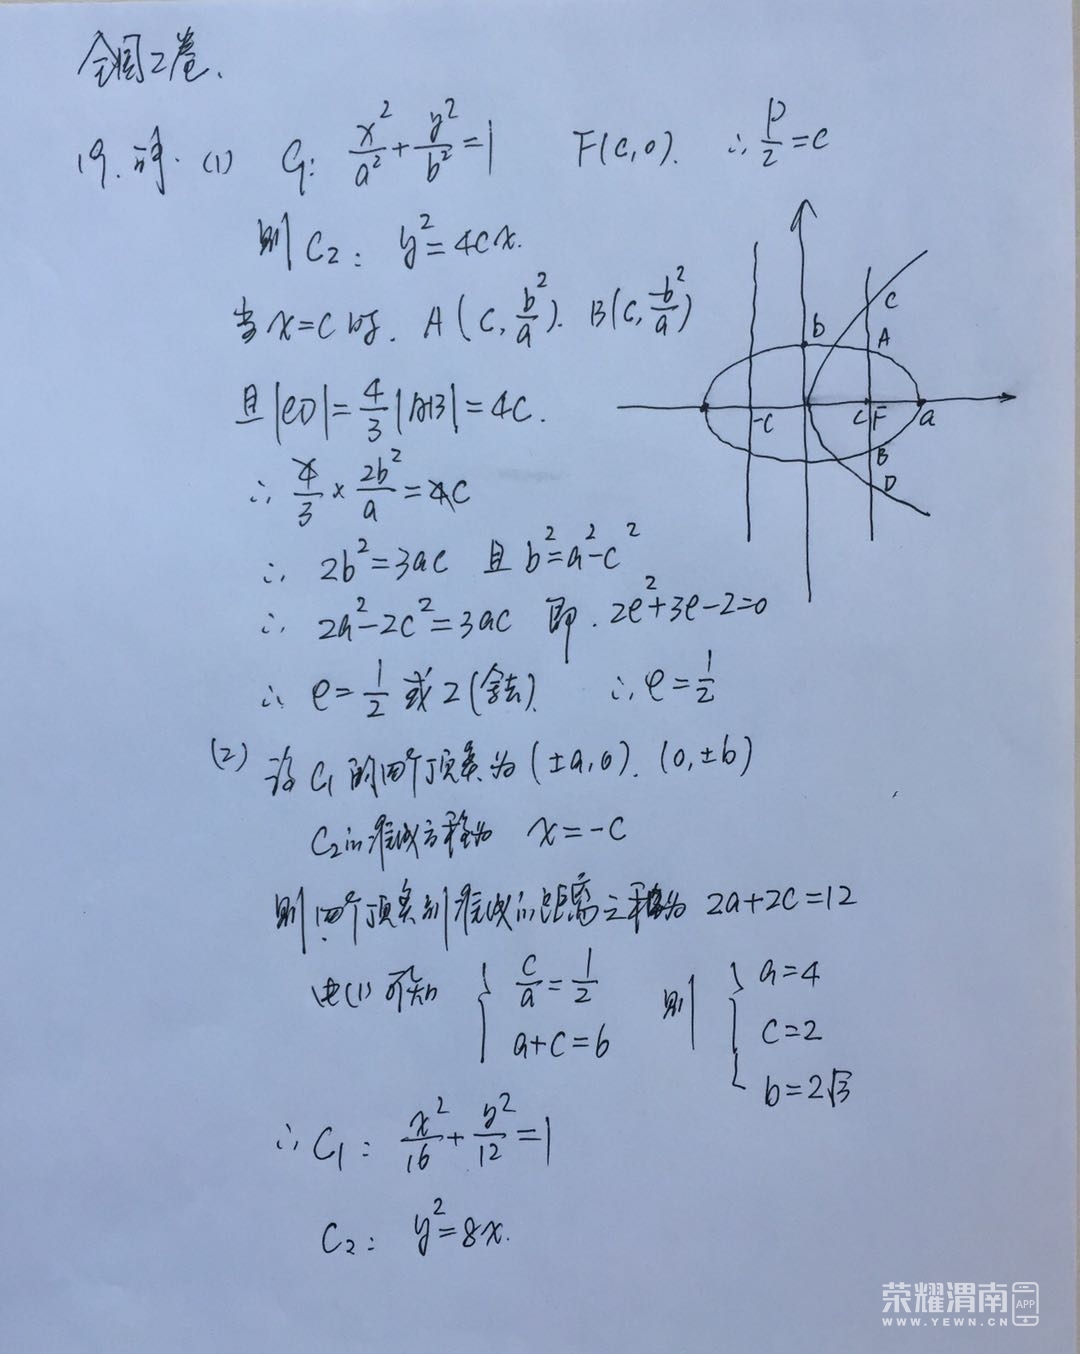 全国2卷.
19.解.(1) C₁: x²/a²+y²/b²=1 F(c,0). ∴ p/2=c
则C₂: y²=4cx.
当x=c时. A(c, b²/a). B(c, -b²/a)
且|CD|=4/3|AB|=4c.
∴ 4/3 × 2b²/a=4c
∴ 2b²=3ac 且 b²=a²-c²
∴ 2a²-2c²=3ac 即. 2e²+3e-2=0
∴ e=1/2 或 2(舍去). ∴ e=1/2
b
C
A
-c
c
F
a
B
D
(2) 设C₁的四个顶点为(±a,0). (0,±b)
C₂的准线方程为 x=-c
则四个顶点到准线的距离之和为 2a+2c=12
由(1)可知 { c/a=1/2 a+c=6 则 { a=4 c=2 b=2√3
∴ C₁: x²/16+y²/12=1
C₂: y²=8x.
荣耀渭南APP
WWW.YEWN.CN